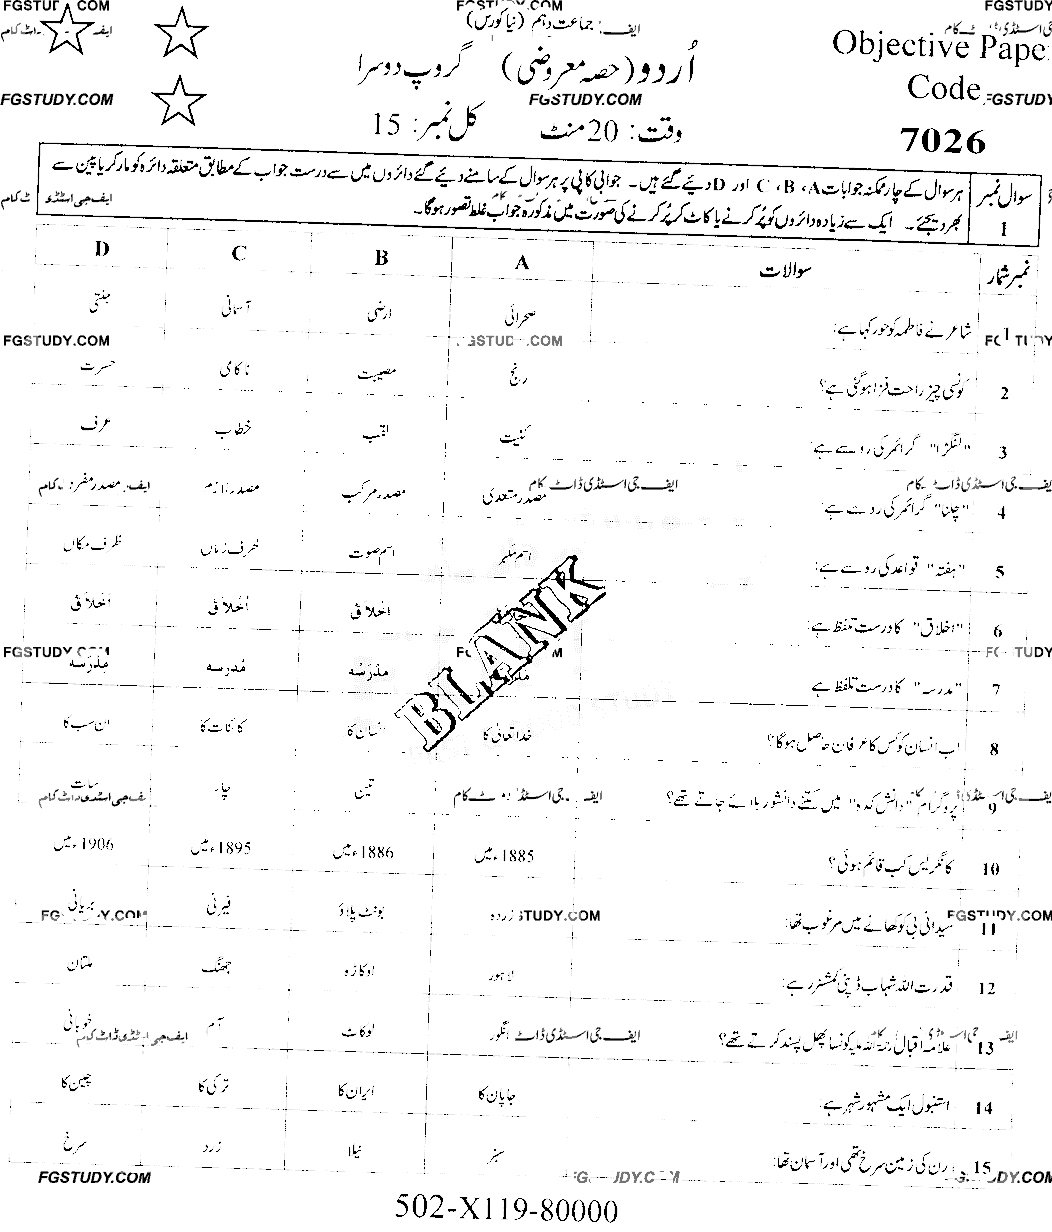 FGSTUDY.COM
ایف: جماعت دہم (نیا کورس)
اُردو (حصہ معروضی) گروپ دوسرا
Objective Paper
Code
وقت: 20 منٹ کل نمبر: 15
7026
FGSTUDY.COM FGSTUDY.COM
سوال نمبر 1 ہر سوال کے چار ممکنہ جوابات A، B، C اور D دیئے گئے ہیں۔ جوابی کاپی پر ہر سوال کے سامنے دیئے گئے دائروں میں سے درست جواب کے مطابق متعلقہ دائرہ کو مارکر یا پین سے
بھر دیجئے۔ ایک سے زیادہ دائروں کو پُر کرنے یا کاٹ کر پُر کرنے کی صورت میں مذکورہ جواب غلط تصور ہوگا۔
نمبر شمار سوالات A B C D
1 شاعر نے فاطمہ کو حور کہا ہے: صحرائی ارضی آسمانی جنتی
FGSTUDY.COM
2 کونسی چیز راحت فزا ہوگئی ہے؟ رنج مصیبت ناکامی حسرت
3 "لنگڑا" گرائمر کی رو سے ہے: کنیت لقب خطاب عرف
ایف جی اسٹڈی ڈاٹ کام
4 "چلنا" گرائمر کی رو سے ہے: مصدر متعدی مصدر مرکب مصدر لازم مصدر مفرد
5 "ہفتہ" قواعد کی رو سے ہے: اسم مکبر اسم صوت ظرف زماں ظرف مکاں
6 "اخلاق" کا درست تلفظ ہے: اِخلاق اُخلاق اَخلاق
7 "مدرسہ" کا درست تلفظ ہے مَدرَسَہ مُدرسہ مِدرَسَہ
8 اب انسان کو کس کا عرفان حاصل ہوگا؟ خدا تعالیٰ کا انسان کا کائنات کا ان سب کا
9 پروگرام "دانش کدہ" میں کتنے دانشور بلائے جاتے تھے؟ تین چار سات
10 کانگریس کب قائم ہوئی؟ 1885ء میں 1886ء میں 1895ء میں 1906ء میں
11 سیدانی بی کو کھانے میں مرغوب تھا: زردہ بونٹ پلاؤ فیرنی بریانی
FGSTUDY.COM
12 قدرت اللہ شہاب ڈپٹی کمشنر رہے: لاہور اوکاڑہ جھنگ ملتان
13 علامہ اقبال رحمۃ اللہ علیہ کونسا پھل پسند کرتے تھے؟ انگور لوکاٹ آم خوبانی
ایف جی اسٹڈی ڈاٹ کام
14 استنبول ایک مشہور شہر ہے: جاپان کا ایران کا ترکی کا چین کا
15 رن کی زمین سرخ تھی اور آسمان تھا: سبز نیلا زرد سرخ
FGSTUDY.COM
502-X119-80000
BLANK